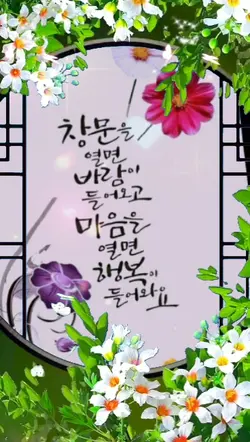 창문을
열면
바람이
들어오고
마음을
열면
행복이
들어와요